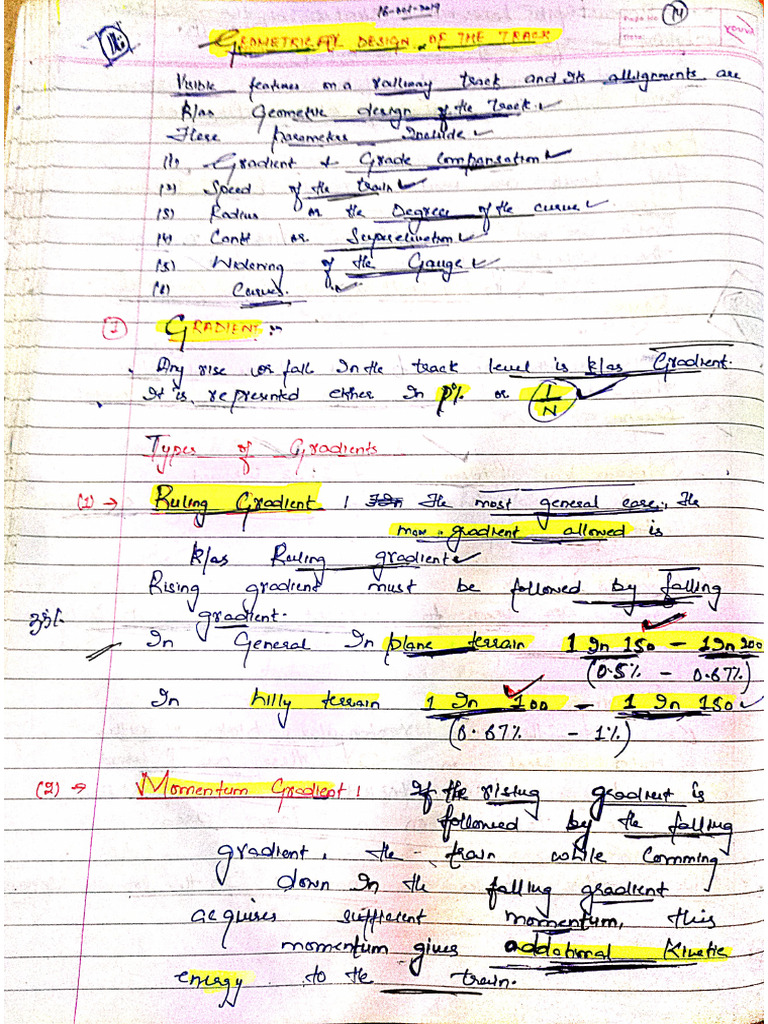 16-Oct-2019
PAGE NO. 14
DATE:
YOUVA
GEOMETRICAL DESIGN OF THE TRACK
Visible features on a railway track and its allignments are
k/as Geometric design of the track.
These parameter Include
(1) Gradient & Grade Compansation
(2) Speed of the train
(3) Radius or the Degrees of the curve
(4) Cant or Superelivation
(5) Widering of the Gauge
(6) Curves.
(1) GRADIENT :-
Any rise or fall In the track level is k/as Gradient.
It is represented either In p% or 1/N
Types of Gradients
(1) → Ruling Gradient : In the most general case, the
max. gradient allowed is
k/as Ruling gradient
Rising gradient must be followed by falling
gradient.
In General In plane terrain 1 In 150 - 1 In 200
(0.5% - 0.67%)
In hilly terrain 1 In 100 - 1 In 150
(0.67% - 1%)
(2) → Momentum Gradient : If the rising gradient is
followed by the falling
gradient, the train while Comming
down In the falling gradient
acquires sufficient momentum, this
momentum gives additional Kinetic
energy to the train.